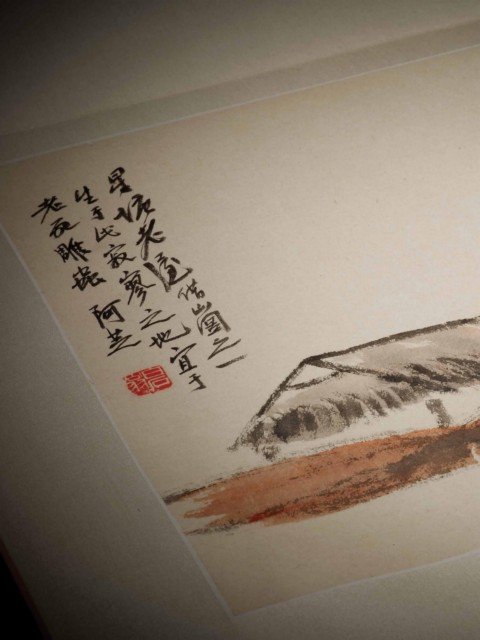 星塘老屋 借山圖之一
生于此寂寥之地宜于
老雕 阿芝